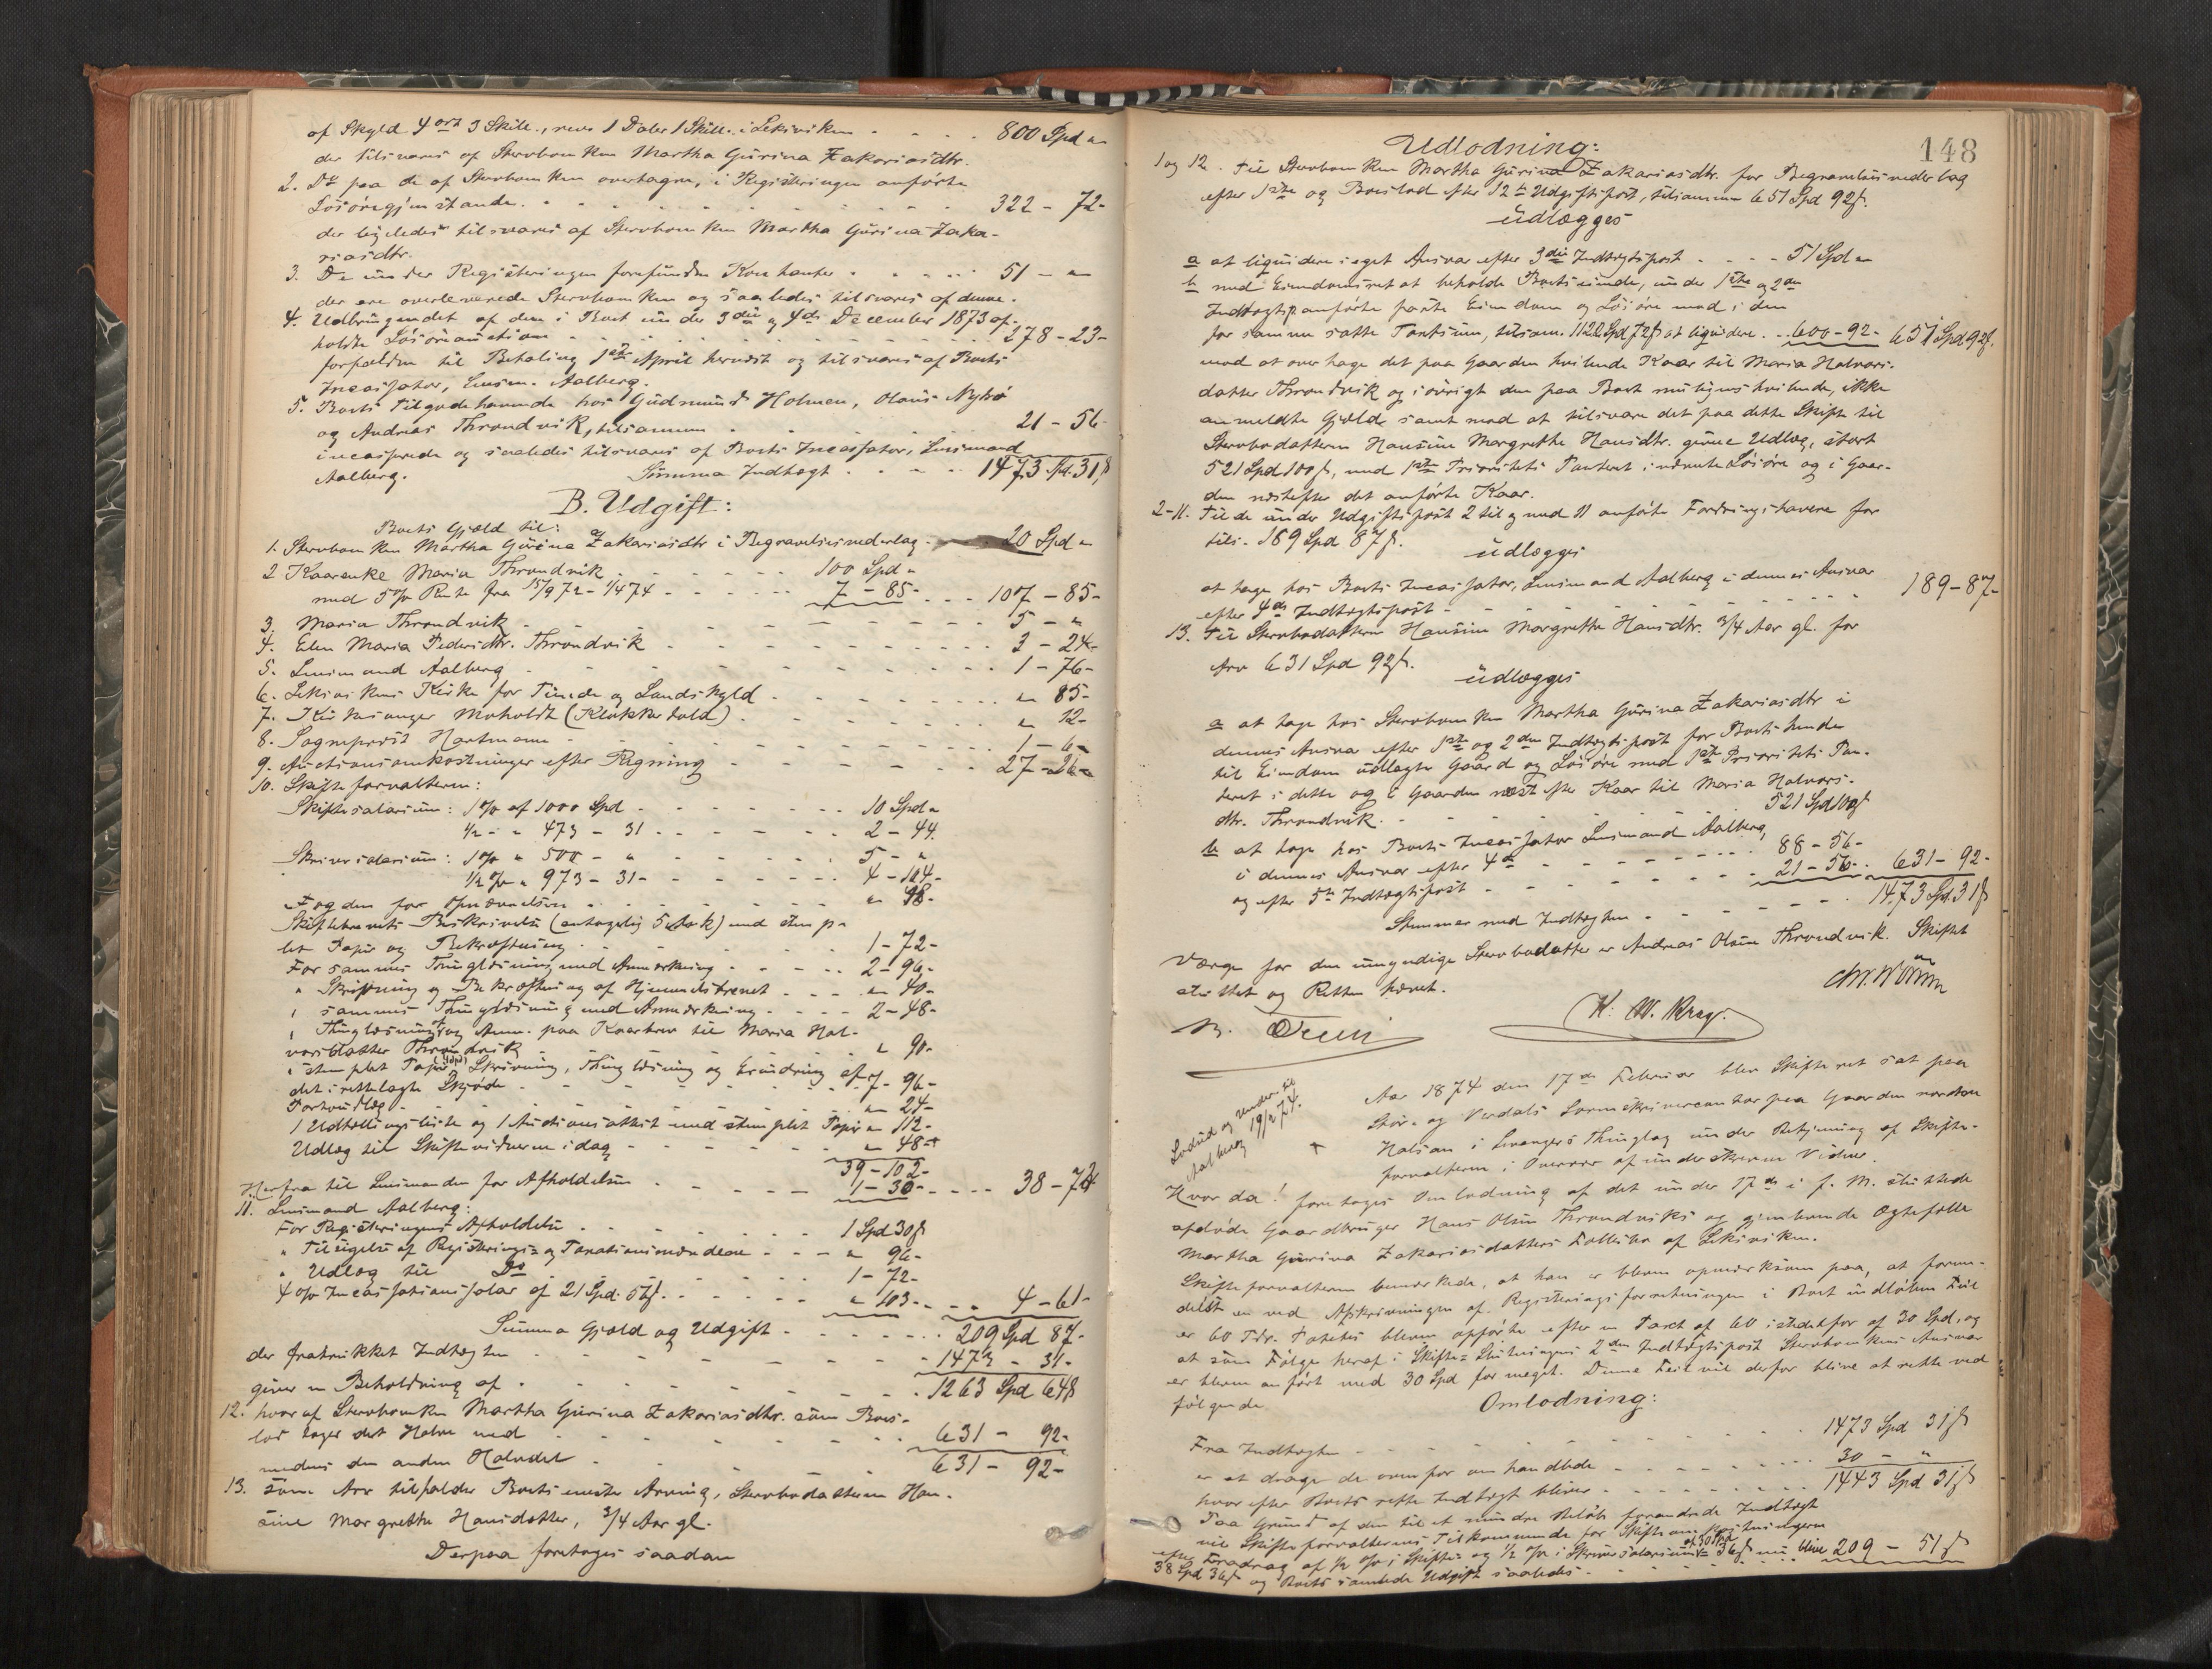 af Skyld 4 ort 3 Skill., revs 1 Daler 1 Skill. i Leksviken . . . . 800 Spd "
der tilsvares af Stervboenken Martha Gurina Zakariasdtr.
2. Do paa de af Stervboenken overtagne, i Registreringen anførte
Løsøregjenstande . . . . . . . 322 - 72-
der ligeledes tilsvares af Stervboenken Martha Gurina Zaka-
riasdtr.
3. De under Registreringen forefundne Kontanter . . . . 51 - "
der ere overleverede Stervboenken og saaledes tilsvares af denne.
4. Udbringendet af den i Boet under 3die og 4de December 1873 af-
holdte Løsøreauction . . . . . . 278-23-
forfalden til Betaling 1ste April herværst og tilsvares af Boets
Incassator, Lensm. Aalberg.
5. Boets Tilgodehavende hos Gudmund Holmen, Olaus Nybø
og Andreas Throndvik, tilsammen . . . . 21-56-
incasserede og saaledes tilsvares af Boets Incassator, Lensmand
Aalberg. Summa Indtægt . . . . 1473 Spd. 31 ß
B. Udgift:
Boets Gjæld til:
1. Stervboenken Martha Gurina Zakariasdtr i Begravelsesvederlag . 20 Spd "
2 Kaarenke Maria Throndvik . . . . . 100 Spd "
med 5% Rente fra 15/9 72 - 1/4 74 . . . . 7 - 85- . . . 107-85-
3. Maria Throndvik . . . . . . 5 - "
4. Elen Maria Pedersdtr. Throndvik . . . . . 3 - 24-
5. Lensmand Aalberg . . . . . . 1-76-
6. Leksvikens Kirke for Tiende og Landskyld . . . . " 85-
7. Kirkesanger Moholdt (Klokkertold) . . . . . " 12-
8. Sogneprest Hartmann . . . . . . 1-6-
9. Auctionsomkostninger efter Regning . . . . . 27-26-
10. Skifteforvalteren:
Skiftesalarium: 1% af 1000 Spd . . . . 10 Spd "
1/2 - " 473 - 31 . . . . 2-44
Skriversalarium: 1% " 500 - " . . . . 5 - "
1/2 % " 973-31- . . . . 4-104-
Fogden for Opnævnelsen . . . . . " 48-
Skiftebrevets Beskrivelse (antagelig 5 Ark) med stemp-
let Papir og Bekræftning . . . . 1-72-
For sammes Thinglæsning med Anmærkning . . . . 2-96-
" Skrivning og Bekræftning af Hjemmelsbrevet . . . " 40-
" sammes Thinglæsning med Anmærkning . . . . 2-48-
" Thinglæsning af og Anm. paa Kaarbrev til Maria Hal-
varsdatter Throndvik . . . . " 90-
" stemplet Papir, Skrivning, Thinglæsning og Erindring af
det i rettelagte Skjøde . . . . . . 7-96-
Portoudlæg . . . . . . " 24-
1 Udtællingsliste og 1 Auctionsattest med stemplet Papir " 112-
Udlæg til Skiftevidnerne i dag . . . . " 48-
39-102-
Herfra til Lensmanden for Afholdelsen . . . . 1-30- . . . 38-72
11. Lensmand Aalberg:
For Registreringens Afholdelse . . . . 1 Spd 30 ß
" Tilsigelse af Registrerings- og Taxationsmændene . . . " 96-
" Udlæg til Do . . . . 1-72-
4 % Incassationssalar af 21 Spd. 56 ß . . . . " 103- . . . 4-61-
Summa Gjæld og Udgift . . . . 209 Spd 87-
der fratrukket Indtægten . . . . . 1473 - 31-
giver en Beholdning af . . . . . 1263 Spd 64 ß
12. hvoraf Stervboenken Martha Gurina Zakariasdtr. som Boes-
lod tager det Halve med . . . . . 631 - 92-
medens den anden Halvdel . . . . . 631 - 92-
13. som Arv tilfalder Boets eneste Arving, Stervbodatteren Han-
sine Margrethe Hansdatter, 3/4 Aar gl.
Derpaa foretoges saadan
148
Udlodning:
1 og 12. Til Stervboenken Martha Gurina Zakariasdtr. for Begravelsesvederlag
efter 1ste og Boeslod efter 12te Udgiftspost, tilsammen 651 Spd 92 ß.
udlægges
a at liquidere i eget Ansvar efter 3die Indtægtspost . . . . 51 Spd "
b med Eiendomsret at beholde Boets iiende, under 1ste og 2den
Indtægtspost anførte faste Eiendom og Løsøre mod i den
for samme satte Taxtsum, tilsam. 1122 Spd 72 ß at liquidere . . 600-92- 651 Spd 92 ß.
mod at overtage det paa Gaarden hvilende Kaar til Maria Halvars-
datter Throndvik og i øvrigt den paa Boet muligens hvilende, ikke
anmeldte Gjæld samt mod at tilsvare det paa dette Skifte til
Stervbodatteren Hansine Margrethe Hansdtr. givne Udlæg, stort
521 Spd 100 ß, med 1ste Prioritets Panteret i nævnte Løsøre og i Gaar-
den næstefter det anførte Kaar.
2-11. Til de under Udgiftspost 2 til og med 11 anførte Fordringshavere for
tils. 189 Spd 87 ß.
udlægges
at tage hos Boets Incassator, Lensmand Aalberg i dennes Ansvar
efter 4de Indtægtspost . . . . . . 189-87-
13. Til Stervbodatteren Hansine Margrethe Hansdtr. 3/4 Aar gl. for
Arv 631 Spd 92 ß.
udlægges
a at tage hos Stervboenken Martha Gurina Zakariasdtr i
dennes Ansvar efter 1ste og 2den Indtægtspost for Boets hende
til Eiendom udlagte Gaard og Løsøre med 1ste Prioritets Pan-
teret i dette og i Gaarden næst efter Kaar til Maria Halvars-
dtr. Throndvik . . . . . . 521 Spd 100 ß
b at tage hos Boets Incassator Lensmand Aalberg,
i dennes Ansvar efter 4de . . . . 88-56-
og efter 5te Indtægtspost . . . . 21-56- . . 631-92-
Stemmer med Indtægten . . . . . 1473 Spd. 31 ß
Værge for den umyndige Stervbodatter er Andreas Olsen Throndvik. Skiftet
sluttet og Retten hævet.
Chr. Worm
K. M. Krag.
Lovbud og sendt til
Aalberg 19/2 74.
Aar 1874 den 17de Februar blev Skifteret sat paa
Stør- og Værdals Sorenskrivercontor paa Gaarden nordre
Halsan i Levangers Thinglag under Betjening af Skifte-
forvalteren i Overvær af underskrevne Vidner.
Hvor da! foretoges Omlodning af det under 17de i f. M. sluttede
afdøde Gaardbruger Hans Olsen Throndviks og gjenlevende Ægtefælle
Martha Gurina Zakariasdatters Fællesbo af Leksviken.
Skifteforvalteren bemærkede, at han er bleven opmærksom paa, at formen-
delst en ved Afskrivningen af Registreringsforretningen i Boet indløben Feil
er 60 Tdr. Poteter bleven opførte efter en Taxt af 60 istedetfor af 30 Spd, og
at som Følge heraf i Skifte-Slutningens 2den Indtægtspost Stervboenkens Ansvar
er bleven anført med 30 Spd for meget. Denne Feil vil derfor blive at rette ved
følgende
Omlodning:
Fra Indtægten . . . . . . 1473 Spd 31 ß
er at drage de ovenfor omhandlede . . . . 30 - "
hvorefter Boets rette Indtægt bliver . . . . 1443 Spd 31 ß
Paa Grund af den til et mindre Beløb forandrede Indtægt
vil Skifteforvalterens Tilkommende for Skifteomkostningerne
efter Fradrag af 1/2 % i Skifte- og 1/2 % i Skriversalarium af 30 Spd = 36 ß nu blive
38 Spd 36 ß og Boets samlede Udgift saaledes . . . . 209 - 51 ß